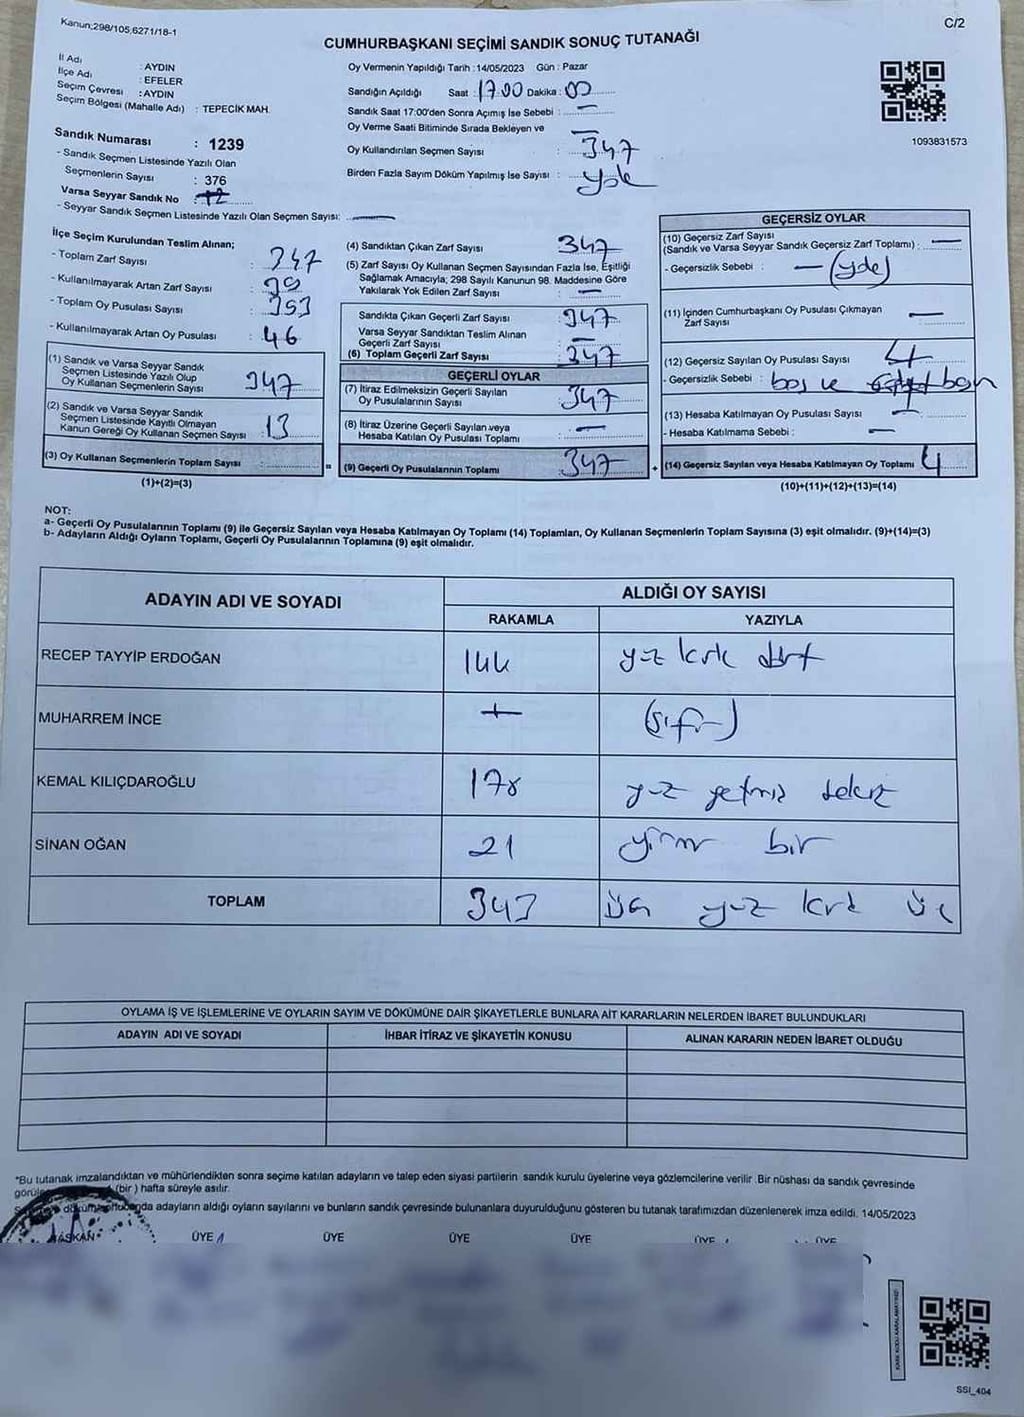 Kanun;298/105,6271/18-1
C/2
CUMHURBAŞKANI SEÇİMİ SANDIK SONUÇ TUTANAĞI
İl Adı : AYDIN
İlçe Adı : EFELER
Seçim Çevresi : AYDIN
Seçim Bölgesi (Mahalle Adı) : TEPECİK MAH.
Sandık Numarası : 1239
- Sandık Seçmen Listesinde Yazılı Olan
Seçmenlerin Sayısı : 376
Varsa Seyyar Sandık No
- Seyyar Sandık Seçmen Listesinde Yazılı Olan Seçmen Sayısı: —
Oy Vermenin Yapıldığı Tarih : 14/05/2023 Gün : Pazar
Sandığın Açıldığı Saat : 17.00 Dakika : 00
Sandık Saat 17:00'den Sonra Açımış İse Sebebi : —
Oy Verme Saati Bitiminde Sırada Bekleyen ve —
Oy Kullandırılan Seçmen Sayısı : 347
Birden Fazla Sayım Döküm Yapılmış İse Sayısı : yok
1093831573
İlçe Seçim Kurulundan Teslim Alınan;
- Toplam Zarf Sayısı : 347
- Kullanılmayarak Artan Zarf Sayısı :
- Toplam Oy Pusulası Sayısı : 393
- Kullanılmayarak Artan Oy Pusulası : 46
(1) Sandık ve Varsa Seyyar Sandık
Seçmen Listesinde Yazılı Olup
Oy Kullanan Seçmenlerin Sayısı 347
(2) Sandık ve Varsa Seyyar Sandık
Seçmen Listesinde Kayıtlı Olmayan
Kanun Gereği Oy Kullanan Seçmen Sayısı : 13
(3) Oy Kullanan Seçmenlerin Toplam Sayısı : =
(1)+(2)=(3)
(4) Sandıktan Çıkan Zarf Sayısı 347
(5) Zarf Sayısı Oy Kullanan Seçmen Sayısından Fazla İse, Eşitliği
Sağlamak Amacıyla; 298 Sayılı Kanunun 98. Maddesine Göre
Yakılarak Yok Edilen Zarf Sayısı : —
Sandıkta Çıkan Geçerli Zarf Sayısı : 347
Varsa Seyyar Sandıktan Teslim Alınan
Geçerli Zarf Sayısı : —
(6) Toplam Geçerli Zarf Sayısı : 347
GEÇERLİ OYLAR
(7) İtiraz Edilmeksizin Geçerli Sayılan
Oy Pusulalarının Sayısı : 347
(8) İtiraz Üzerine Geçerli Sayılan veya
Hesaba Katılan Oy Pusulası Toplamı : —
(9) Geçerli Oy Pusulalarının Toplamı : 347 +
GEÇERSİZ OYLAR
(10) Geçersiz Zarf Sayısı
(Sandık ve Varsa Seyyar Sandık Geçersiz Zarf Toplamı) : —
- Geçersizlik Sebebi : —
(11) İçinden Cumhurbaşkanı Oy Pusulası Çıkmayan
Zarf Sayısı : —
(12) Geçersiz Sayılan Oy Pusulası Sayısı : 4
- Geçersizlik Sebebi : boş ve
(13) Hesaba Katılmayan Oy Pusulası Sayısı :
- Hesaba Katılmama Sebebi : —
(14) Geçersiz Sayılan veya Hesaba Katılmayan Oy Toplamı 4
(10)+(11)+(12)+(13)=(14)
NOT:
a- Geçerli Oy Pusulalarının Toplamı (9) ile Geçersiz Sayılan veya Hesaba Katılmayan Oy Toplamı (14) Toplamları, Oy Kullanan Seçmenlerin Toplam Sayısına (3) eşit olmalıdır. (9)+(14)=(3)
b- Adayların Aldığı Oyların Toplamı, Geçerli Oy Pusulalarının Toplamına (9) eşit olmalıdır.
ADAYIN ADI VE SOYADI
ALDIĞI OY SAYISI
RAKAMLA YAZIYLA
RECEP TAYYİP ERDOĞAN 144 yüz kırk dört
MUHARREM İNCE (sıfır)
KEMAL KILIÇDAROĞLU 178 yüz yetmiş sekiz
SİNAN OĞAN 21 yirmi bir
TOPLAM 343 üç yüz kırk üç
OYLAMA İŞ VE İŞLEMLERİNE VE OYLARIN SAYIM VE DÖKÜMÜNE DAİR ŞİKAYETLERLE BUNLARA AİT KARARLARIN NELERDEN İBARET BULUNDUKLARI
ADAYIN ADI VE SOYADI İHBAR İTİRAZ VE ŞİKAYETİN KONUSU ALINAN KARARIN NEDEN İBARET OLDUĞU
*Bu tutanak imzalandıktan ve mühürlendikten sonra seçime katılan adayların ve talep eden siyasi partilerin sandık kurulu üyelerine veya gözlemcilerine verilir. Bir nüshası da sandık çevresinde
(bir) hafta süreyle asılır.
adayların aldığı oyların sayılarını ve bunların sandık çevresinde bulunanlara duyurulduğunu gösteren bu tutanak tarafımızdan düzenlenerek imza edildi. 14/05/2023
BAŞKAN ÜYE ÜYE ÜYE ÜYE ÜYE ÜYE
SSI_404